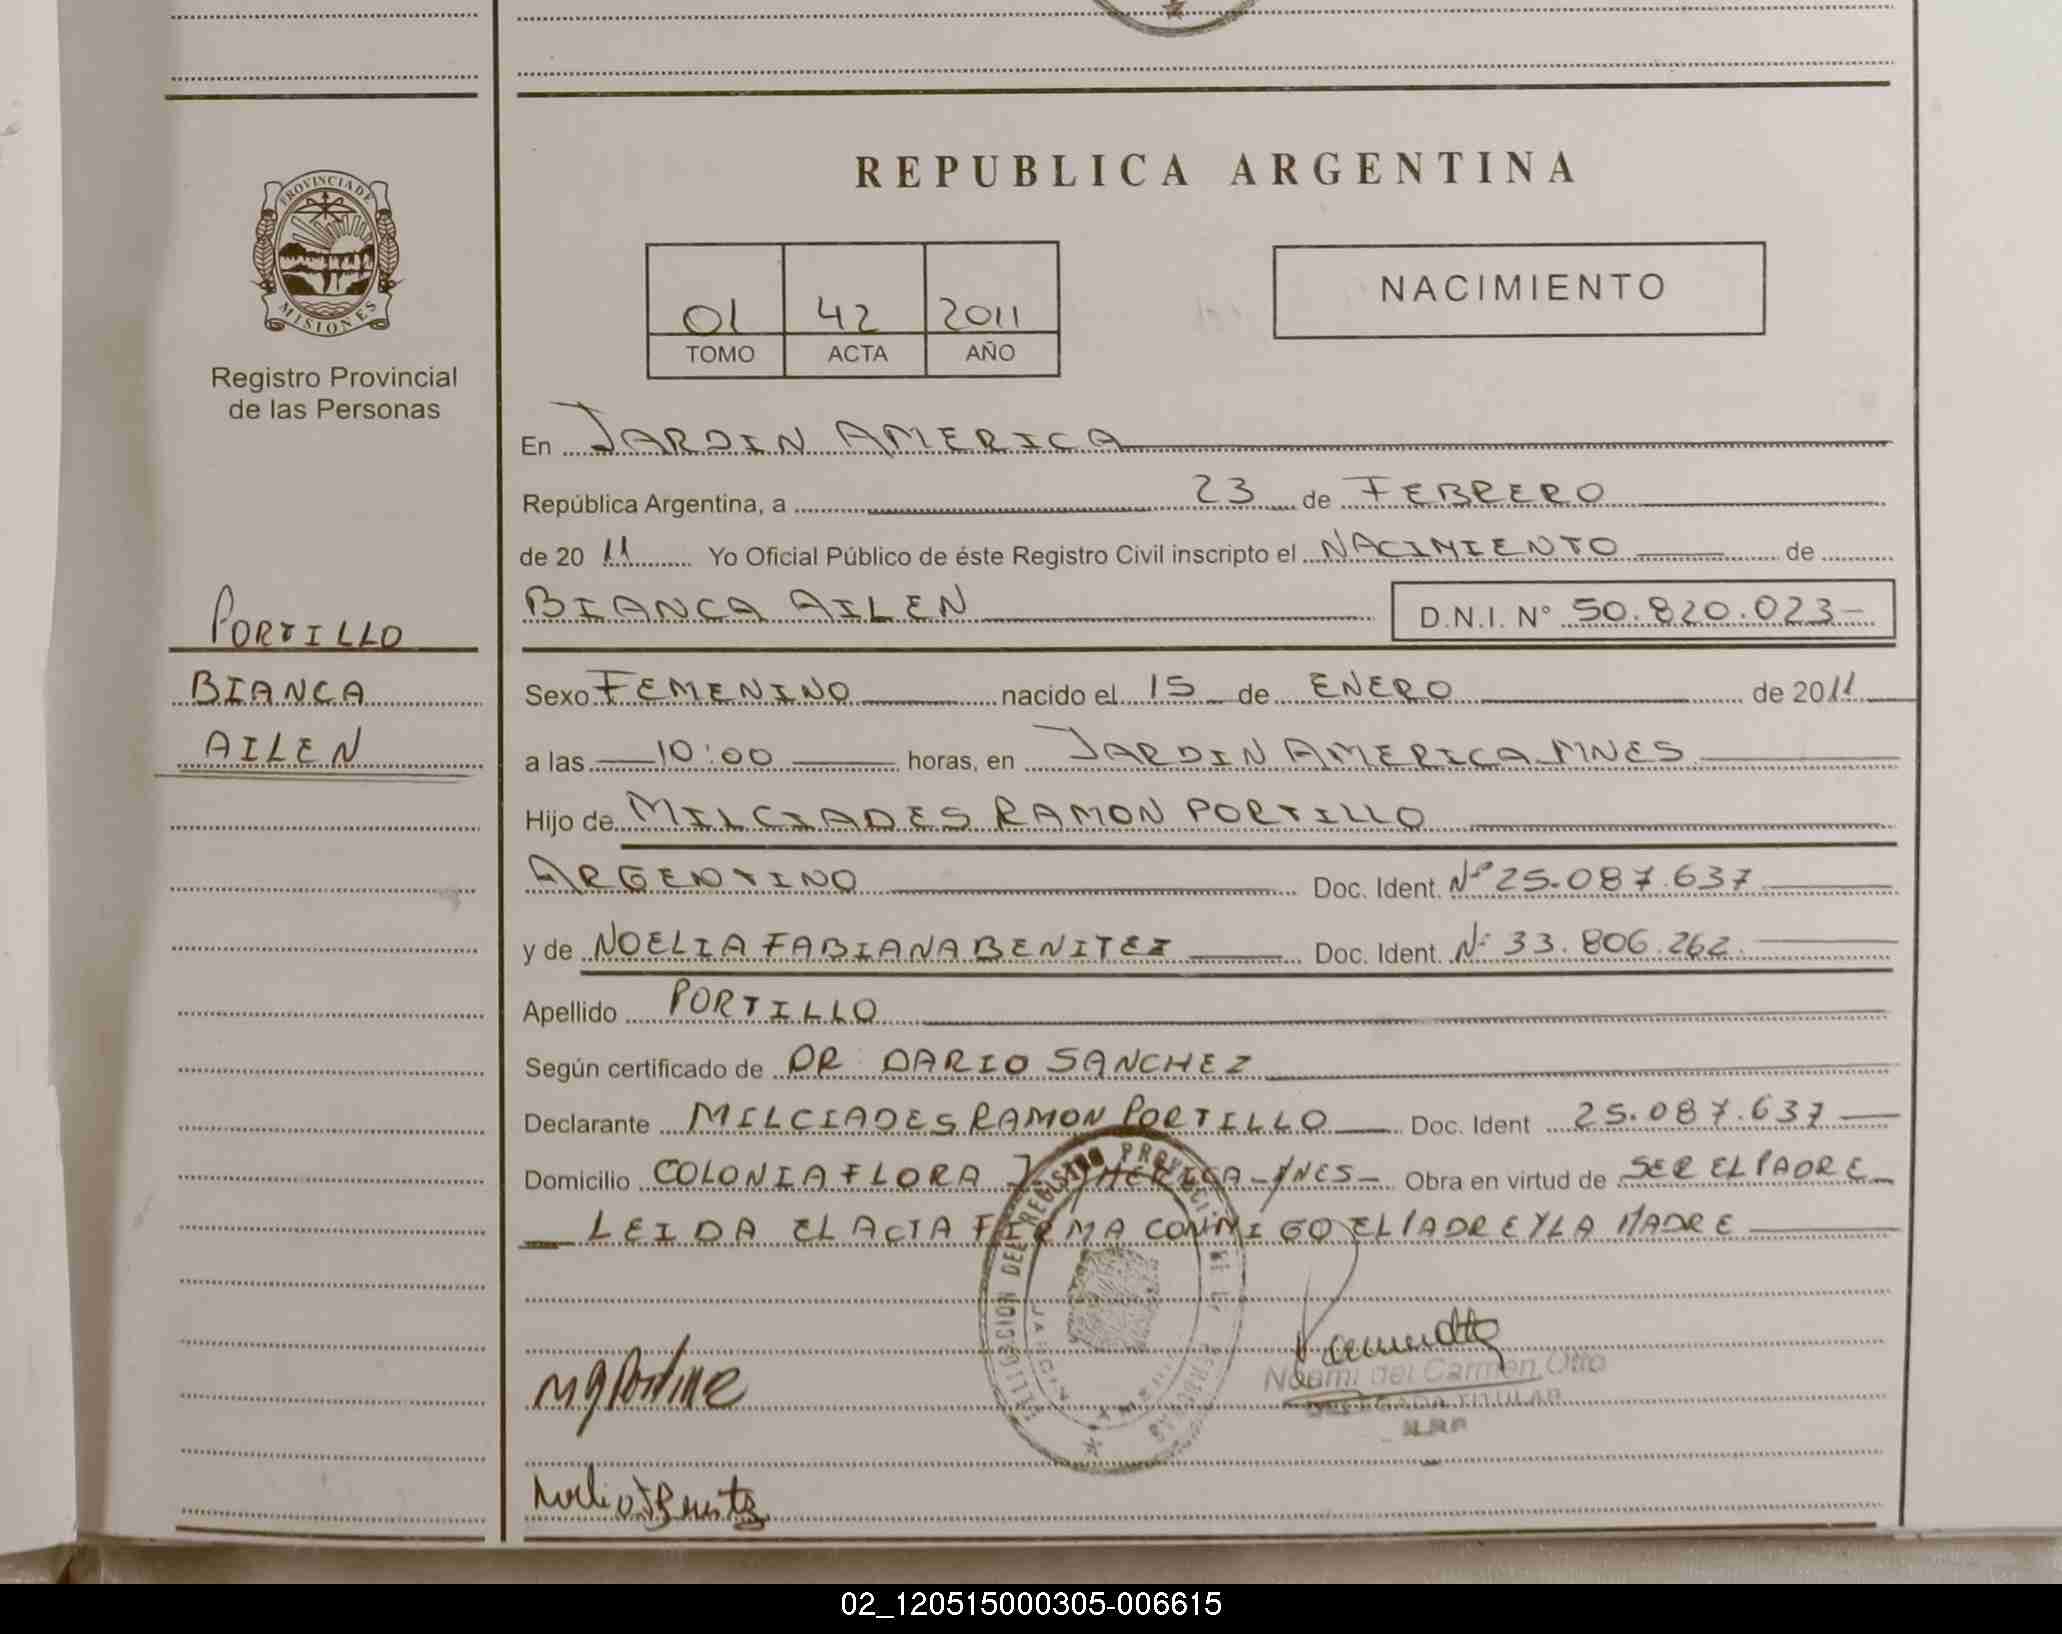 REPUBLICA ARGENTINA
PROVINCIA DE
MISIONES
Registro Provincial
de las Personas
01 42 2011
TOMO ACTA AÑO
NACIMIENTO
En JARDIN AMERICA
República Argentina, a 23 de FEBRERO
de 20 11 Yo Oficial Público de éste Registro Civil inscripto el NACIMIENTO de
BIANCA AILEN D.N.I. N° 50.820.023-
PORTILLO
BIANCA
AILEN
Sexo FEMENINO nacido el 15 de ENERO de 2011
a las 10:00 horas, en JARDIN AMERICA MNES
Hijo de MILCIADES RAMON PORTILLO
ARGENTINO Doc. Ident. N° 25.087.637
y de NOELIA FABIANA BENITEZ Doc. Ident. N° 33.806.262
Apellido PORTILLO
Según certificado de DR DARIO SANCHEZ
Declarante MILCIADES RAMON PORTILLO Doc. Ident 25.087.637
Domicilio COLONIA FLORA J. AMERICA-MNES- Obra en virtud de SER EL PADRE
LEIDA EL ACTA FIRMA CONMIGO EL PADRE Y LA MADRE
DEL REGISTRO PROVINCIAL DE LAS PERSONAS
Noemi del Carmen Otto
DELEGADA TITULAR
02_120515000305-006615